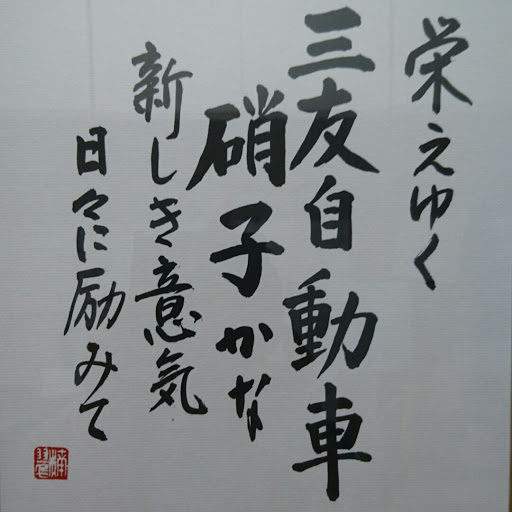 栄えゆく
三友自動車
硝子かな
新しき意気
日々に励みて